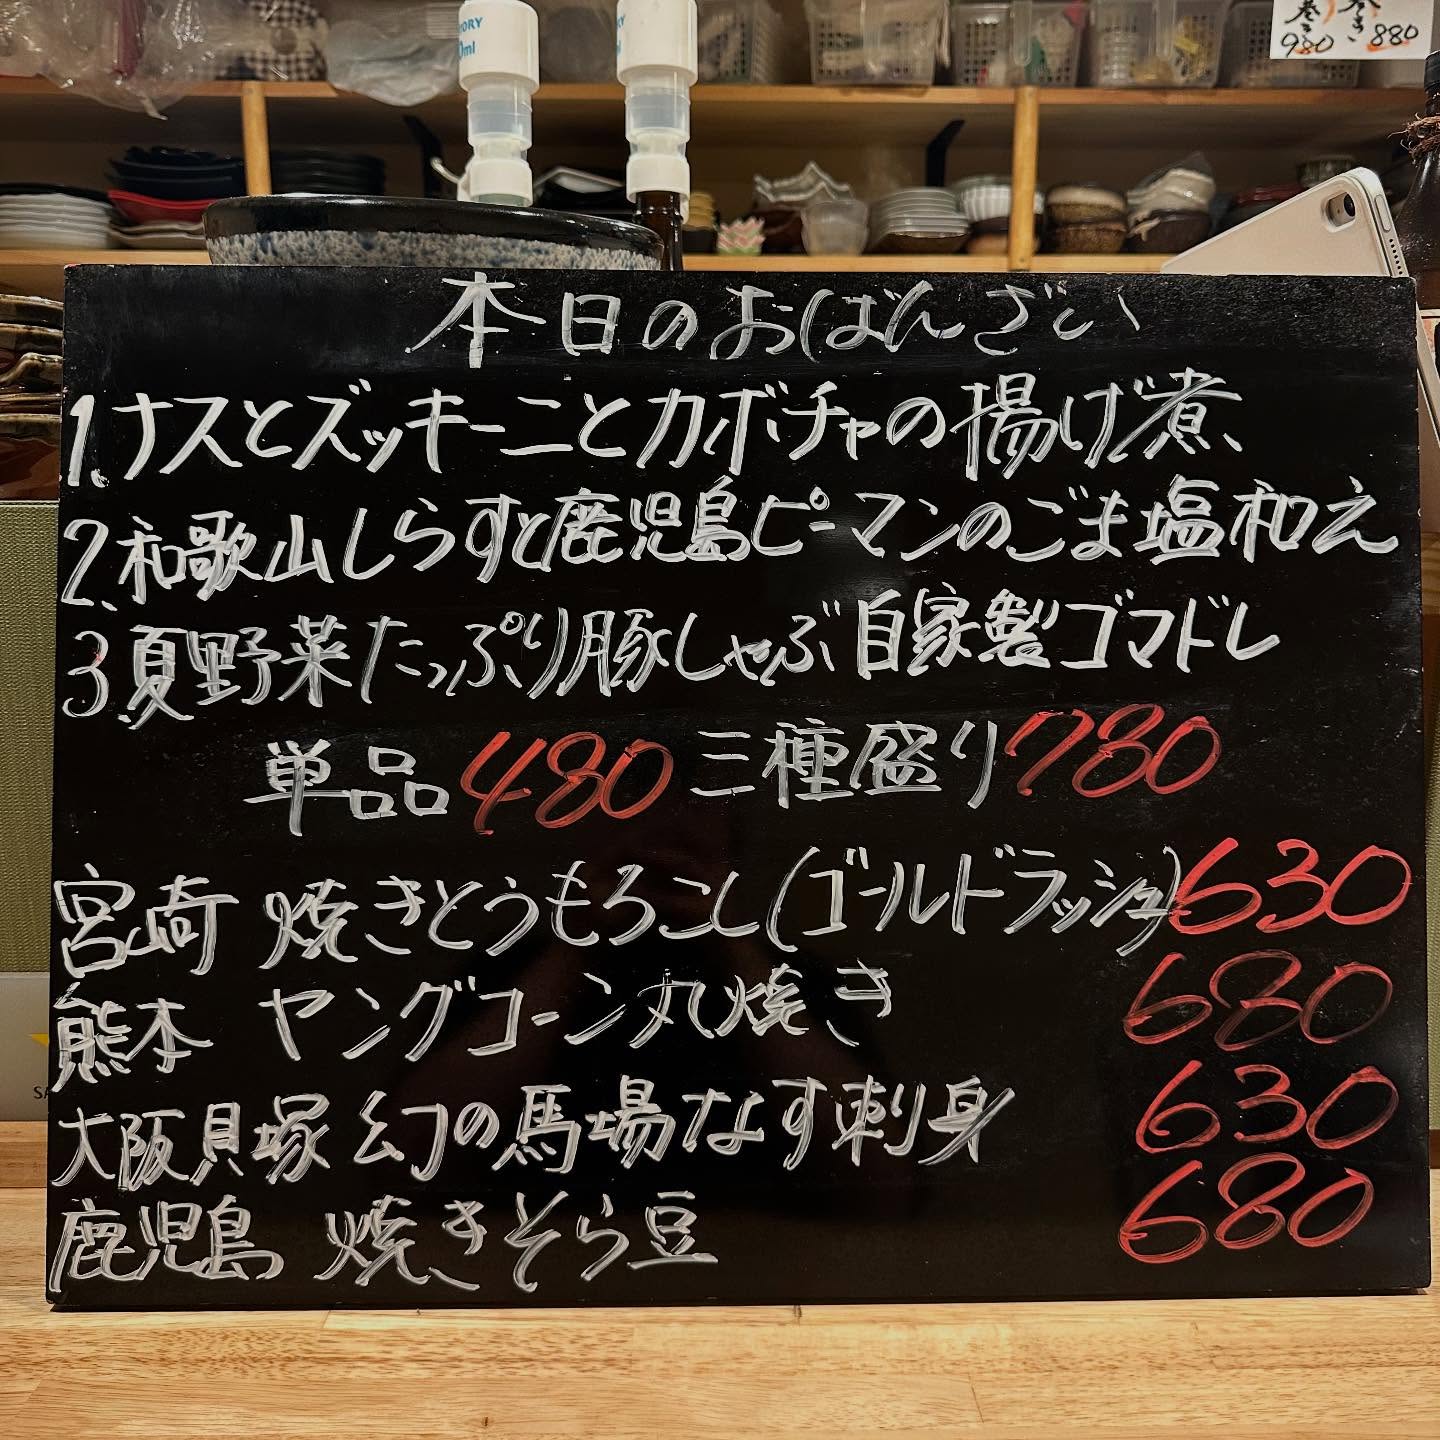 巻き 巻き
980 880
本日のおばんざい
1.ナスとズッキーニとカボチャの揚げ煮、
2.和歌山しらすと鹿児島ピーマンのごま塩和え
3.夏野菜たっぷり豚しゃぶ自家製ゴマドレ
単品480 三種盛り780
宮崎 焼きとうもろこし(ゴールドラッシュ)630
熊本 ヤングコーン丸焼き 680
大阪貝塚 幻の馬場なす刺身 630
鹿児島 焼きそら豆 680